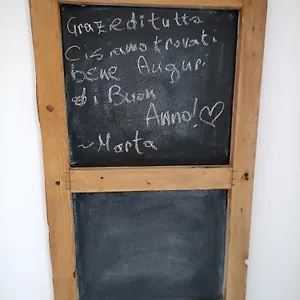 Grazie di tutto
Ci siamo trovati
bene Auguri
di Buon
Anno! ♡
~ Marta